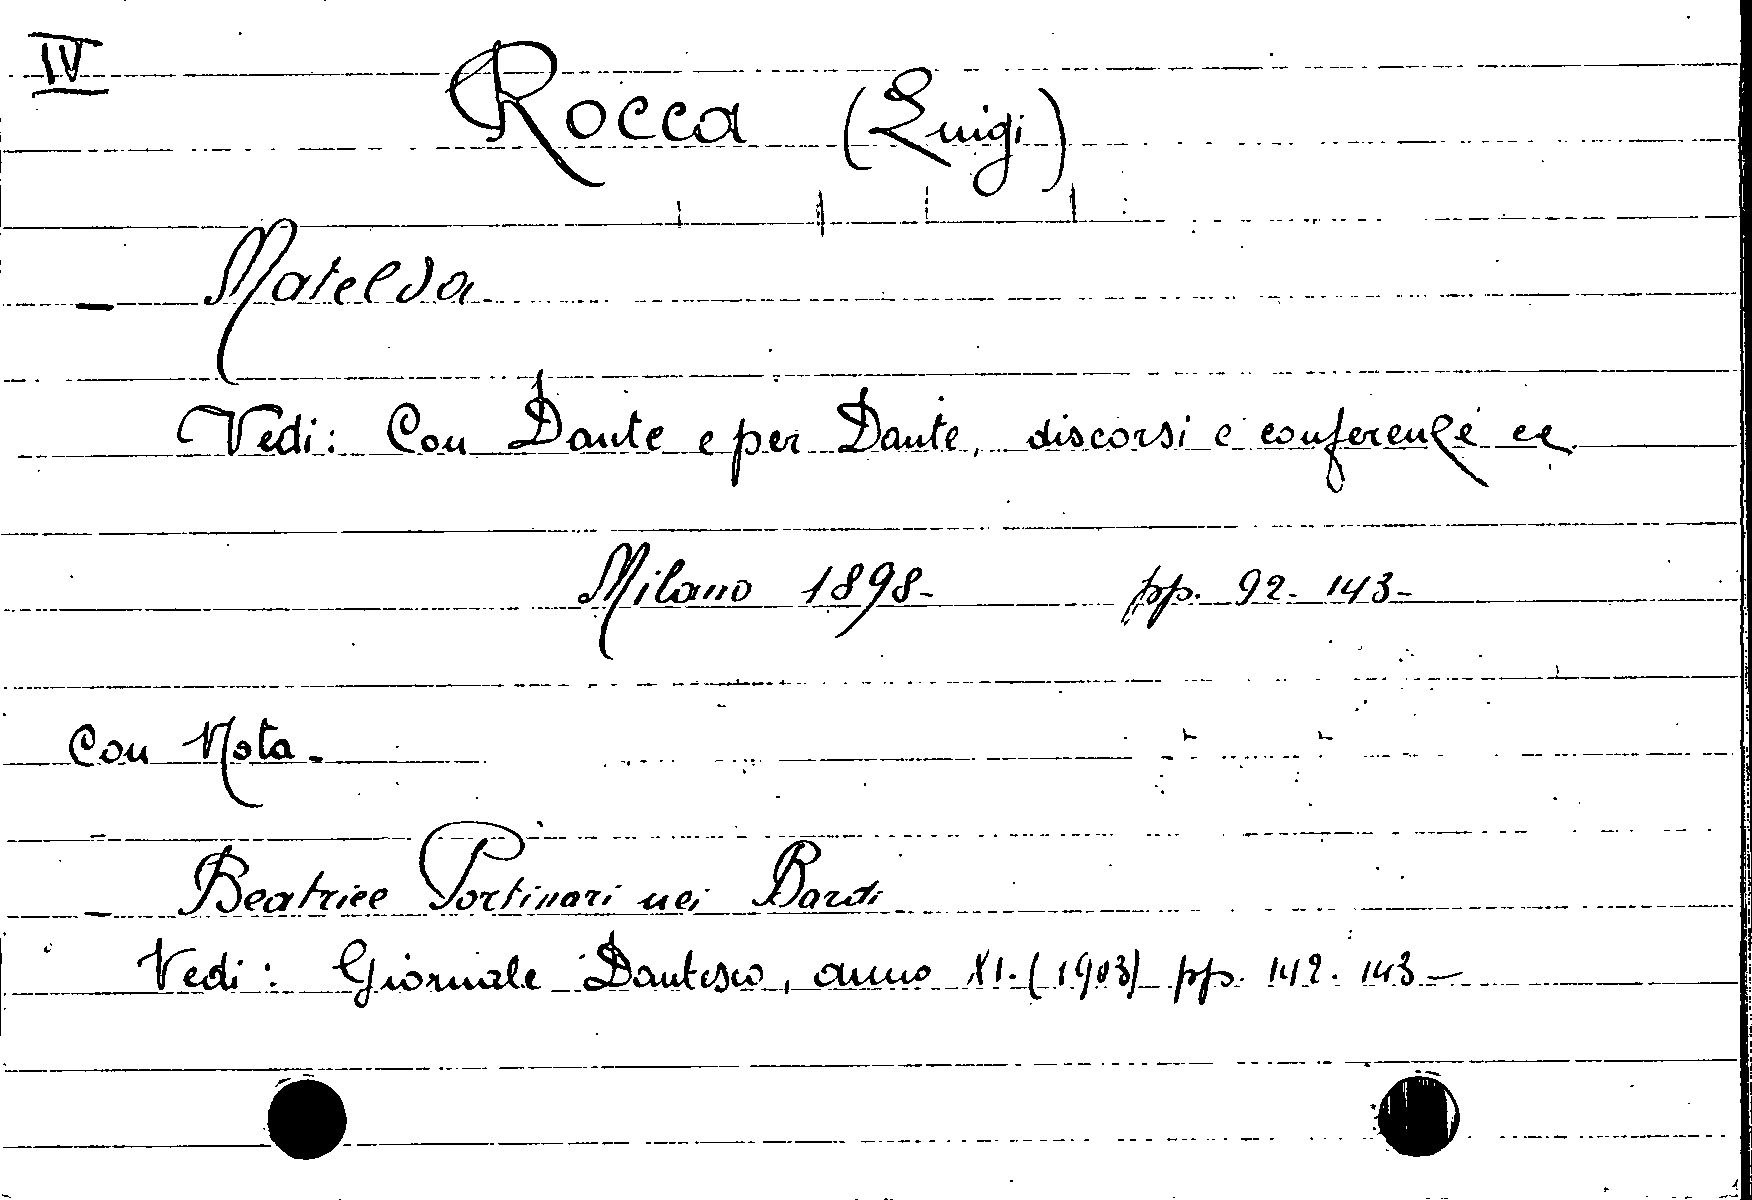 IV
Rocca (Luigi)
- Matelda
Vedi: Con Dante e per Dante, discorsi e conferenze ec.
Milano 1898- pp. 92-143-
Con Nota-
- Beatrice Portinari nei Bardi
Vedi: Giornale Dantesco, anno XI. (1903) pp. 142-143-